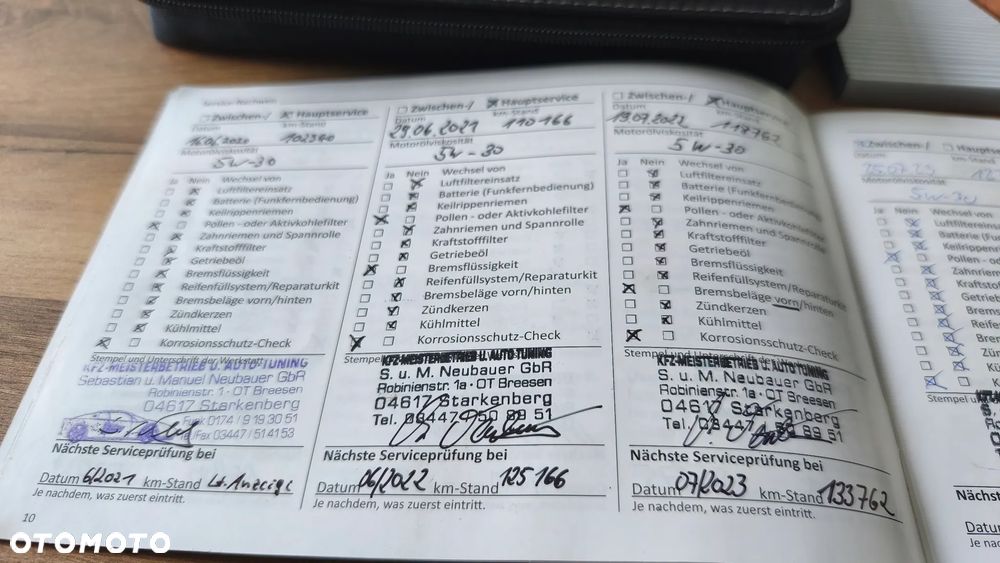 Service-Nachweis
Zwischen-/ Hauptservice
Datum km-Stand
16.06.2020 102340
Motorölviskosität
5W-30
Ja Nein Wechsel von
Luftfiltereinsatz
Batterie (Funkfernbedienung)
Keilrippenriemen
Pollen - oder Aktivkohlefilter
Zahnriemen und Spannrolle
Kraftstofffilter
Getriebeöl
Bremsflüssigkeit
Reifenfüllsystem/Reparaturkit
Bremsbeläge vorn/hinten
Zündkerzen
Kühlmittel
Korrosionsschutz-Check
Stempel und Unterschrift der Werkstatt
KFZ-MEISTERBETRIEB U. AUTO TUNING
Sebastian u. Manuel Neubauer GbR
Robinienstr. 1 - OT Breesen
04617 Starkenberg
Funk 0174 / 9 19 30 51
Tel/Fax 03447 / 51 41 53
Nächste Serviceprüfung bei
Datum 6/2021 km-Stand Lt. Anzeige
Je nachdem, was zuerst eintritt.
10
Zwischen-/ Hauptservice
Datum km-Stand
29.06.2021 110 166
Motorölviskosität
5W-30
Ja Nein Wechsel von
Luftfiltereinsatz
Batterie (Funkfernbedienung)
Keilrippenriemen
Pollen - oder Aktivkohlefilter
Zahnriemen und Spannrolle
Kraftstofffilter
Getriebeöl
Bremsflüssigkeit
Reifenfüllsystem/Reparaturkit
Bremsbeläge vorn/hinten
Zündkerzen
Kühlmittel
Korrosionsschutz-Check
KFZ-MEISTERBETRIEB U. AUTO TUNING
S. u. M. Neubauer GbR
Robinienstr. 1a · OT Breesen
04617 Starkenberg
Tel. 03447 50 89 51
Nächste Serviceprüfung bei
Datum 06/2022 km-Stand 125 166
Je nachdem, was zuerst eintritt.
Zwischen-/ Hauptservice
Datum km-Stand
19.07.2022 117762
Motorölviskosität
5W-30
Ja Nein Wechsel von
Luftfiltereinsatz
Batterie (Funkfernbedienung)
Keilrippenriemen
Pollen - oder Aktivkohlefilter
Zahnriemen und Spannrolle
Kraftstofffilter
Getriebeöl
Bremsflüssigkeit
Reifenfüllsystem/Reparaturkit
Bremsbeläge vorn/hinten
Zündkerzen
Kühlmittel
Korrosionsschutz-Check
Stempel und Unterschrift
KFZ-MEISTERBETRIEB U. AUTO TUNING
S. u. M. Neubauer GbR
Robinienstr. 1a · OT Breesen
04617 Starkenberg
Tel. 03447 50 89 51
Nächste Serviceprüfung bei
Datum 07/2023 km-Stand 133762
Je nachdem, was zuerst eintritt.
Zwischen-/ Hauptservice
Datum km-Stand
25.07.23
Motorölviskosität
5W-30
Ja Nein Wechsel von
Luftfiltereinsatz
Batterie (Funkf
Keilrippenriem
Pollen - oder A
Zahnriemen
Kraftstofff
Getrieb
Bremsf
Reifen
Brem
Zün
Küh
Ko
Nächst
Datu
Je na
OTOMOTO